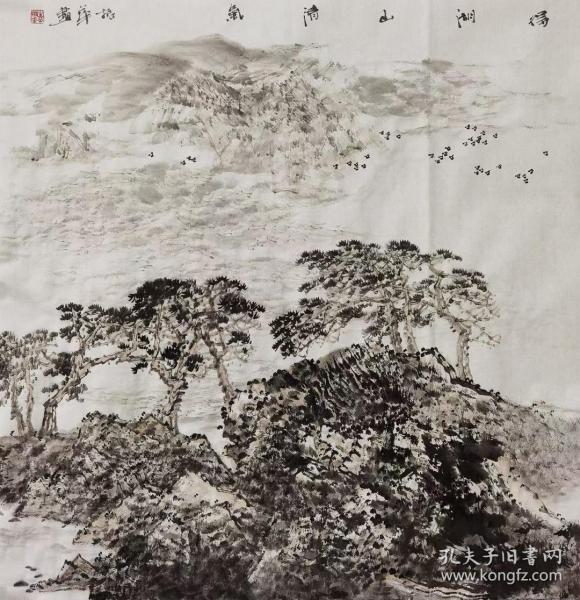 得湖山清氣
孔夫子旧书网
www.kongfz.com